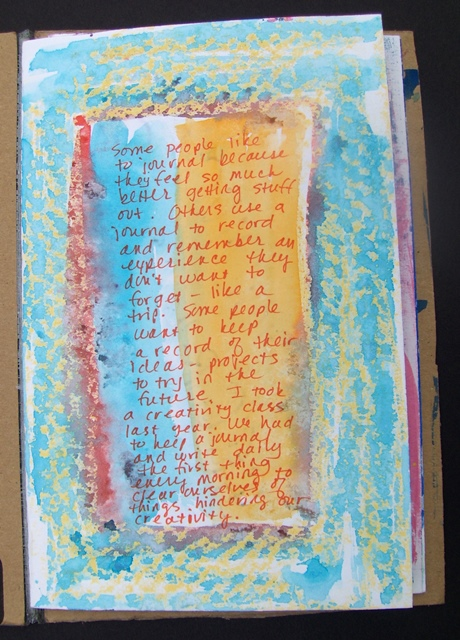 Some people like
to journal because
they feel so much
better getting stuff
out. Others use a
journal to record
and remember an
experience they
don't want to
forget - like a
trip. Some people
want to keep
a record of their
ideas - projects
to try in the
future. I took
a creativity class
last year. We had
to keep a journal
and write daily
the first thing
every morning to
clear ourselves of
things hindering our
creativity.